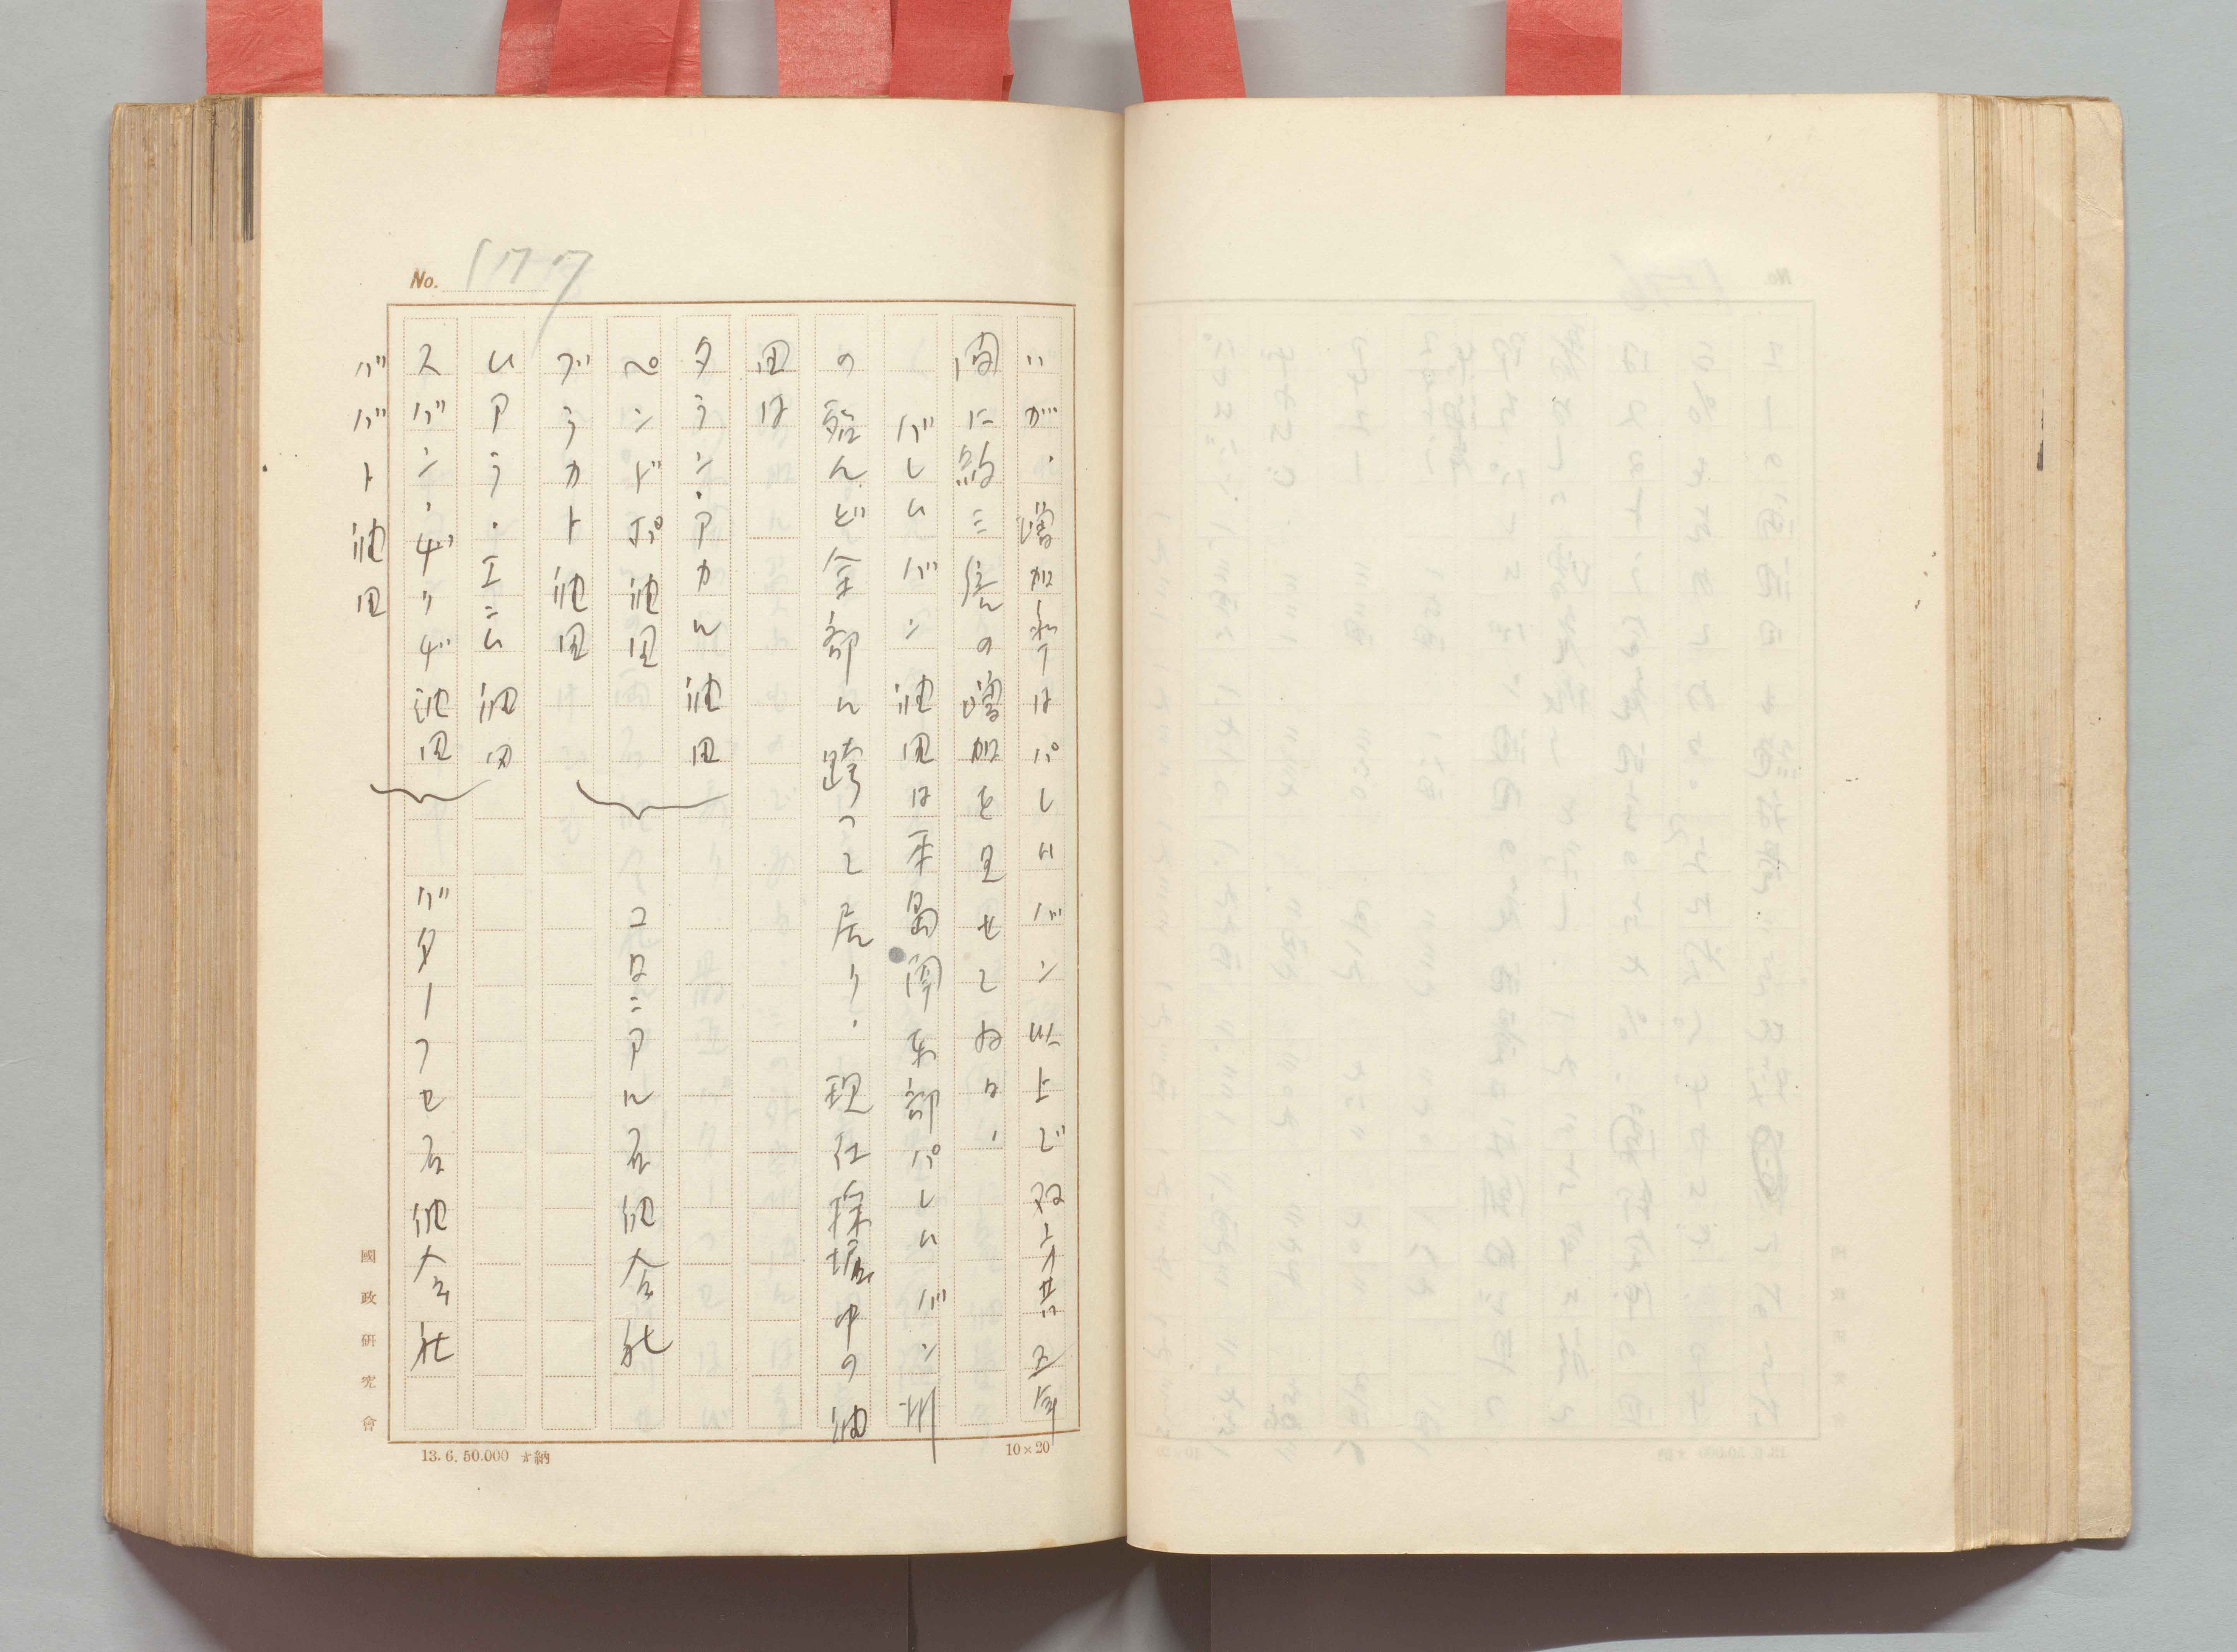 No. 177
いが、増加率はパレンバン以上で
間に約三倍の増加を見せてゐる、
パレムバン油田は本島南東部パレムバン州
の殆んど全部に跨つて居り、現在採掘中の油
田は
タラン・アカル油田
ペンドポ油田
ブラカト油田
ムアラ・エニム油田
スバン・ヂリヂ油田
ババト油田
コロニアル石油会社
バターフセ石油会社
國政研究會
13.6.50.000 納
10×20